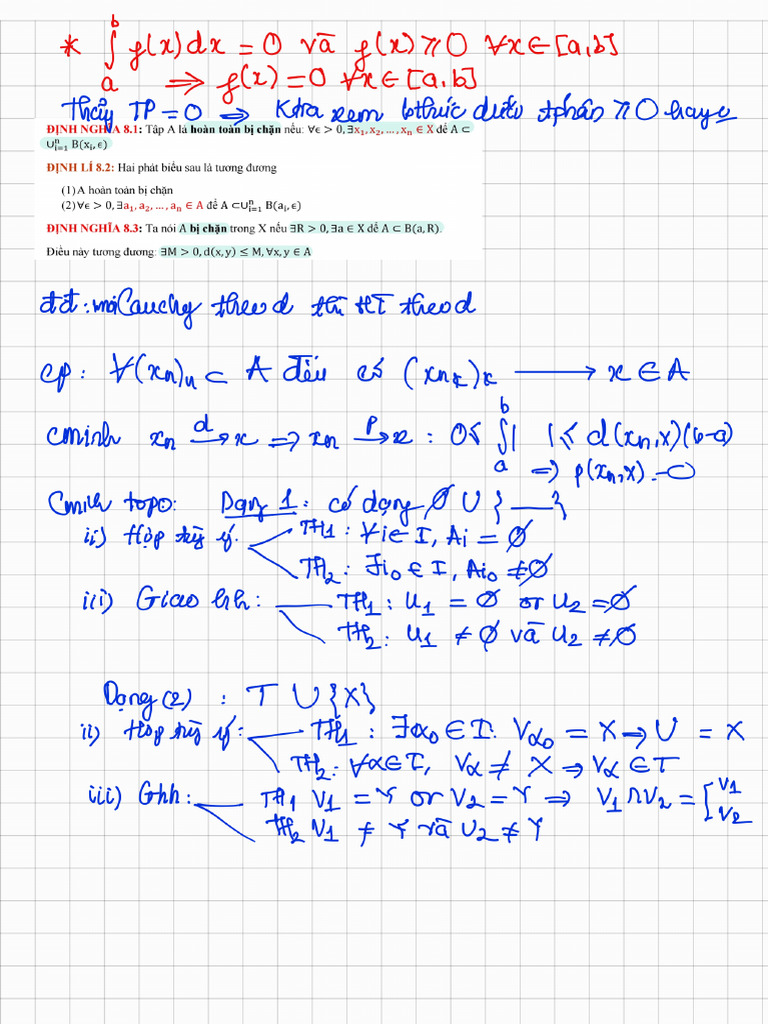 * ∫ₐᵇ f(x)dx = 0 và f(x) ≥ 0 ∀x∈[a,b]
⇒ f(x) = 0 ∀x∈[a,b]
Thấy TP = 0 ⇒ Ktra xem bthức dưới tphân ≥ 0 hay c
ĐỊNH NGHĨA 8.1: Tập A là hoàn toàn bị chặn nếu: ∀ϵ > 0, ∃x₁, x₂, … , xₙ ∈ X để A ⊂
∪ⁿᵢ₌₁ B(xᵢ, ϵ)
ĐỊNH LÍ 8.2: Hai phát biểu sau là tương đương
(1) A hoàn toàn bị chặn
(2) ∀ϵ > 0, ∃a₁, a₂, … , aₙ ∈ A để A ⊂∪ⁿᵢ₌₁ B(aᵢ, ϵ)
ĐỊNH NGHĨA 8.3: Ta nói A bị chặn trong X nếu ∃R > 0, ∃a ∈ X để A ⊂ B(a, R).
Điều này tương đương: ∃M > 0, d(x, y) ≤ M, ∀x, y ∈ A
đđ: mỗi Cauchy theo d thì HT theo d
cp: ∀(xn)n ⊂ A đều có (xnₖ)ₖ ⟶ x ∈ A
cminh xn →ᵈ x ⇒ xn →ᵖ x : 0≤ ∫ₐᵇ| |≤ d(xn,x)(b-a)
⇒ p(xn,x) → 0
Cminh topo: Dạng 1: có dạng ∅ ∪ {___}
ii) Hợp tùy ý: TH1: ∀i∈I, Ai = ∅
TH2: ∃i₀ ∈ I, Ai₀ ≠ ∅
iii) Giao hh: TH1: U1 = ∅ or U2 = ∅
TH2: U1 ≠ ∅ và U2 ≠ ∅
Dạng (2) : T ∪ {X}
ii) Hợp tùy ý: TH1: ∃α₀ ∈ I: Vα₀ = X ⇒ U = X
TH2: ∀α∈I, Vα ≠ X ⇒ Vα ∈ T
iii) Ghh: TH1 V1 = Y or V2 = Y ⇒ V1 ∩ V2 = [V1
V2
TH2 V1 ≠ Y và V2 ≠ Y